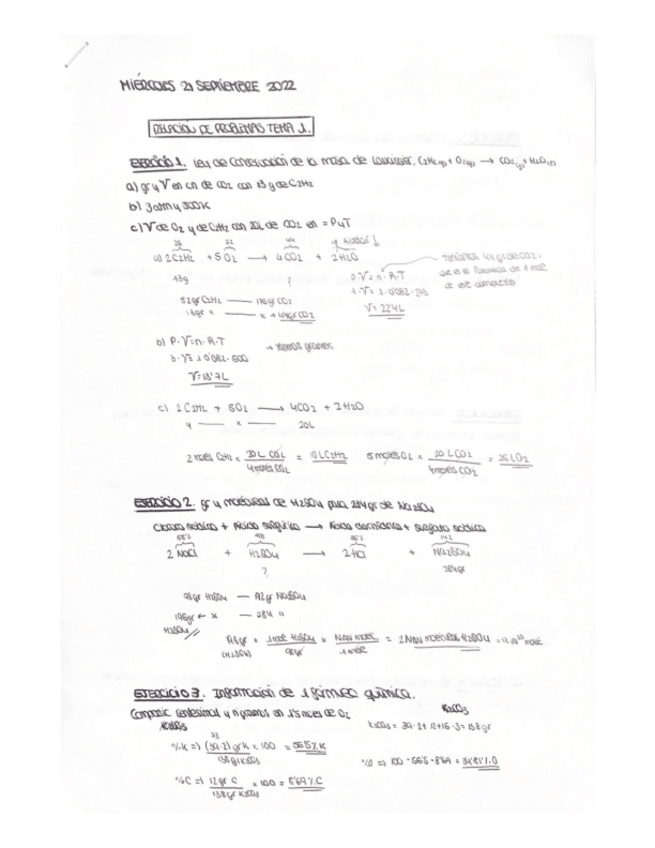 MIÉRCOLES 21 SEPTIEMBRE 2022
RELACIÓN DE PROBLEMAS TEMA 1.
EJERCICIO 1. Ley de Conservación de la masa de Lavoisier. C2H2(g) + O2(g) → CO2(g) + H2O(l)
a) gr y V en cn de CO2 con 13 g de C2H2
b) 3 atm y 500K
c) V de O2 y de C2H2 con 20L de CO2 en = P y T
26 32 44 18
a) 2C2H2 + 5O2 → 4CO2 + 2H2O
Tenemos 44 gr de CO2,
13g ? P·V = n·R·T
1·V = 1·0'082·273
52 gr C2H2 — 176 gr CO2
13 gr " — x = 44 gr CO2 V = 22'4L
b) P·V = n·R·T
3·V = 1·0'082·500
V = 13'7L
c) 2C2H2 + 5O2 → 4CO2 + 2H2O
y — x — 20L
2 moles C2H2 × 20L CO2 / 4 moles CO2 = 10L C2H2 5 moles O2 × 20L CO2 / 4 moles CO2 = 25L O2
EJERCICIO 2. gr y moléculas de H2SO4 para 284 gr de Na2SO4
Cloruro sódico + Ácido sulfúrico → Ácido clorhídrico + Sulfato sódico
98 142
2 NaCl + H2SO4 → 2HCl + Na2SO4
? 284 gr
98 gr H2SO4 — 142 gr Na2SO4
196 gr ← x — 284 "
H2SO4
196 gr × 1 mol H2SO4 / 98 gr × NAV molec / 1 mol = 2 NAV moléculas H2SO4
(H2SO4)
EJERCICIO 3. Información de 1 fórmula química.
Composic. centesimal y n gramos en 1'5 moles de O2 K2CO3
K2CO3 K2CO3 = 39·2 + 12 + 16·3 = 138 gr
78
%K ⇒ (39·2) gr K / 138 gr K2CO3 × 100 = 56'5% K
%O ⇒ 100 - 56'5 - 8'69 = 34'81% O
%C ⇒ 12 gr C / 138 gr K2CO3 × 100 = 8'69% C